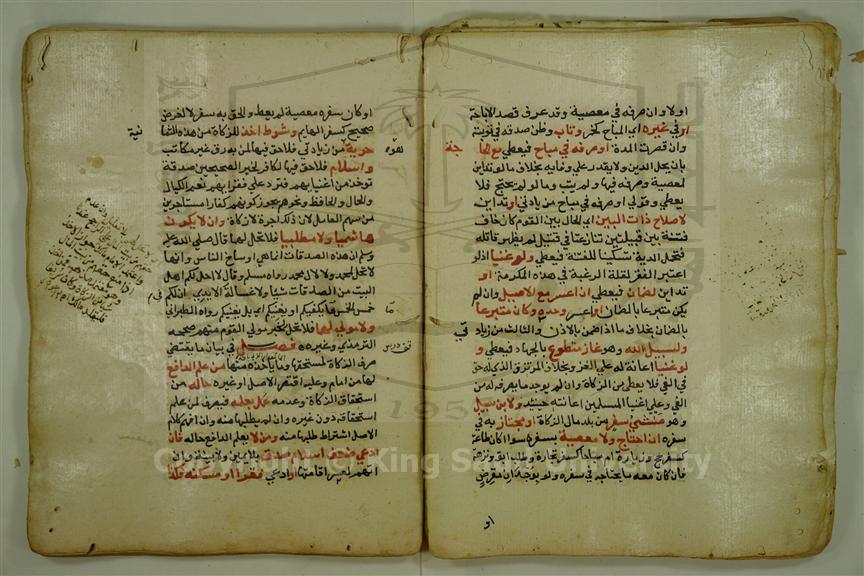 اولا وان صرفه في معصية وقد عرف قصد الاباحة
او في غيره اي المباح كخمر وتاب وظن صدقه في توبته
وان قصرت المدة او صرفه في مباح فيعطي مع الحاجة
بان يحل الدين ولا يقدر علي وفايه بخلاف ما لو تداين
لمعصية وصرفه فيها ولم يتب وما لو لم يحتج فلا
يعطي وقولي او صرفه في مباح من زيادتي او تداين
لاصلاح ذات البين اي الحال بين القوم كان خاف
فتنة بين قبيلتين تنازعتا في قتيل لم يظهر قاتله
فتحمل الدية تسكينا للفتنة فيعطي ولو غنيا اذ لو
اعتبر الفقر لقلت الرغبة في هذه المكرمة او
تداين لضمان فيعطي ان اعسر مع الاصيل وان لم
يكن متبرعا بالضمان او اعسر وحده وكان متبرعا
بالضمان بخلاف ما اذا ضمن بالاذن والثالث من زيادتي
ولسبيل الله وهو غاز متطوع بالجهاد فيعطي و
لو غنيا اعانة له علي الغزو بخلاف المرتزق الذي له حق
في الفي فلا يعطي من الزكاة وان لم يوجد ما يصرف له من
الفي وعلي اغنيا المسلمين اعانته حينئذ ولابن سبيل
وهو منشئ سفر من بلد مال الزكاة او مجتاز به في
سفره ان احتاج ولا معصية بسفره سوا كان طاعة
كسفر حج وزيارة ام مباحا كسفر تجارة وطلب ابق ونزهة
فان كان معه ما يحتاجه في سفره ولو بوجدان مقرض
او
او كان سفره معصية لم يعط والحق به سفر لا لغرض
صحيح كسفر الهايم وشرط اخذ للزكاة من هذه الثمانية
حرية من زيادتي فلا حق فيها لمن به رق غير مكاتب
واسلام فلا حق فيها لكافر لخبر الصحيحين صدقة
توخذ من اغنيايهم فترد علي فقرايهم نعم الكيال
والحمال والحافظ ونحوهم يجوز كونهم كفارا مستاجرين
من سهم العامل لان ذلك اجرة لا زكاة وان لا يكون
هاشميا ولا مطلبيا فلا تحل لهما قال صلي الله عليه
وسلم ان هذه الصدقات انما هي اوساخ الناس وانها
لا تحل لمحمد ولا لال محمد رواه مسلم وقال لا احل لكم اهل
البيت من الصدقات شيا ولا غسالة الايدي ان لكم في
خمس الخمس ما يكفيكم او يغنيكم اي بل يغنيكم رواه الطبراني
ولا مولي لهما فلا تحل لخبر مولي القوم منهم صححه
الترمذي وغيره فصل في بيان ما يقتضي
صرف الزكاة لمستحقها وما ياخذه منها من علم الدافع
لها من امام وعليه اقتصر الاصل او غيره حاله من
استحقاق الزكاة وعدمه عمل بعلمه فيصرف لمن علم
استحقاقه دون غيره وان لم يطلبها منه وان افهم كلام
الاصل اشتراط طلبها منه ومن لا يعلم الدافع حاله فان
ادعي ضعف اسلام صدق بلا يمين ولا بينة وان
اتهم لعسر اقامتها او ادعي فقرا او مسكنة فكذا